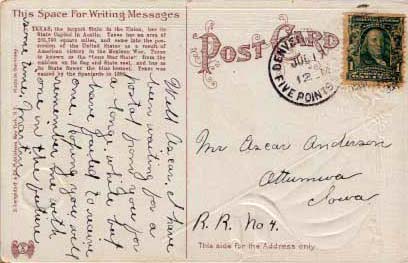 This Space For Writing Messages
TEXAS, the largest State in the Union, has its
State Capitol in Austin. Texas has an area of
square miles, and came into the pos-
session of the United States as a result of
American victory in the Mexican War. Texas
is known as the "Lone Star State" from the
emblem on its flag and State seal, and has as
its State flower the blue bonnet. Texas was
Well Oscar. I have
been waiting for a
postal from you for
a long while but
have failed to receive
one. Hoping you will
remember me with
one in the future
some time, I am
POST CARD
DENVER
JUL
12
FIVE POINTS
Mr Oscar Anderson
Ottumwa
Iowa
R. R. No 4.
This side for the Address only.